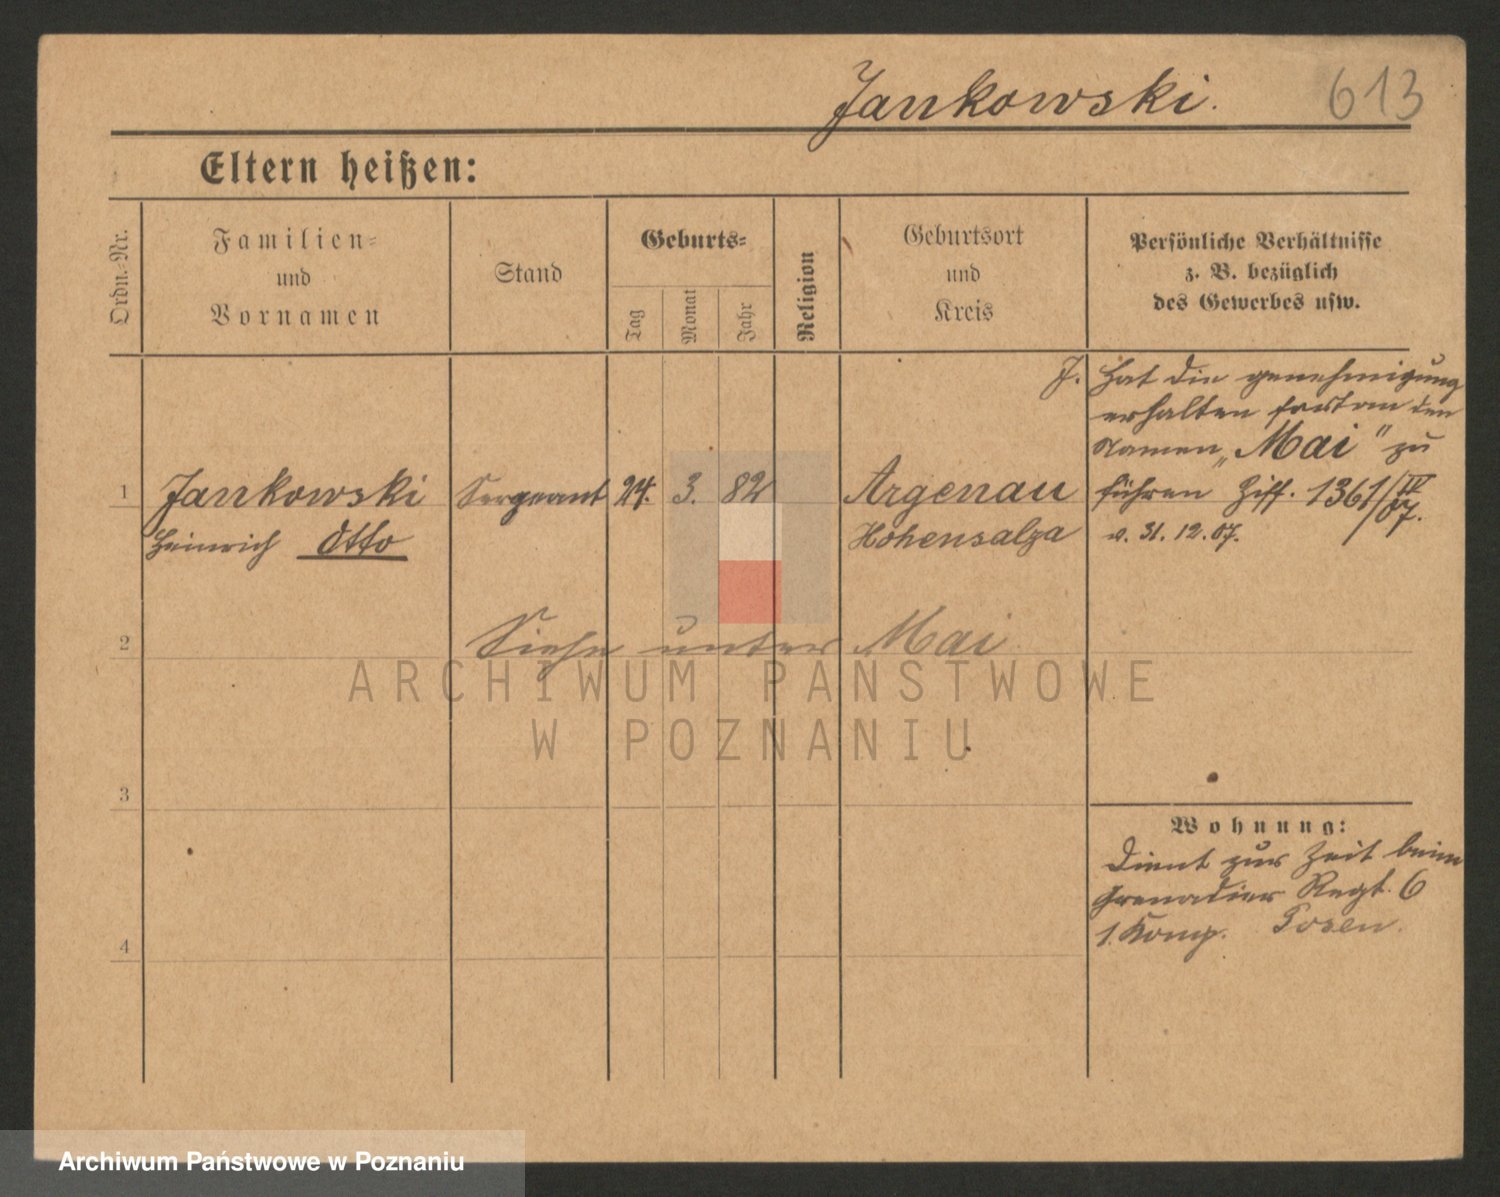 Jankowski.
613
Eltern heißen:
Ordn.-Nr.
Familien-
und
Vornamen
Stand
Geburts-
Tag
Monat
Jahr
Religion
Geburtsort
und
Kreis
Persönliche Verhältnisse
z. B. bezüglich
des Gewerbes usw.
J. Hat die genehmigung
erhalten fortan den
Namen „Mai" zu
1 Jankowski Sergeant 24. 3. 82 Argenau führen Ziff. 1361/IV 07.
Heinrich Otto Hohensalza v. 31. 12. 07.
2 Siehe unter Mai
ARCHIWUM PAŃSTWOWE
W POZNANIU
3
Wohnung:
Dient zur Zeit beim
Grenadier Regt. 6
1. Komp. Posen.
4
Archiwum Państwowe w Poznaniu